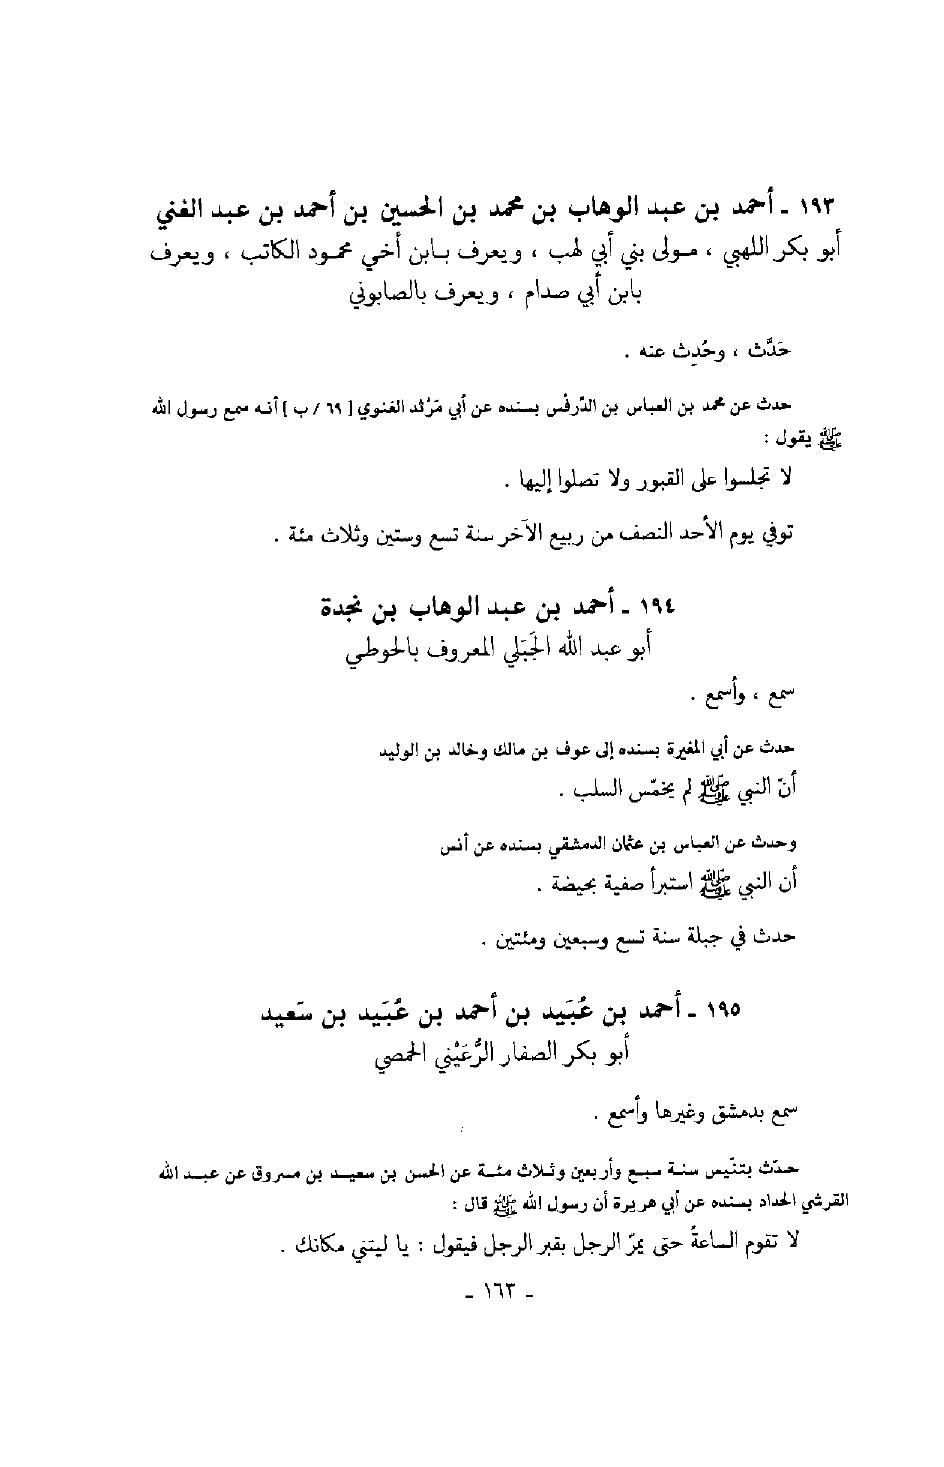 ١٩٣ - أحمد بن عبد الوهاب بن محمد بن الحسين بن أحمد بن عبد الغني
أبو بكر اللهبي ، مولى بني أبي لهب ، ويعرف بابن أخي محمود الكاتب ، ويعرف
بابن أبي صدام ، ويعرف بالصابوني
حَدَّث ، وحُدِث عنه .
حدث عن محمد بن العباس بن الدِّرفْس بسنده عن أبي مَرْثد الغنوي [ ٦٩ / ب ] أنه سمع رسول الله
ﷺ يقول :
لا تجلسوا على القبور ولا تصلوا إليها .
توفي يوم الأحد النصف من ربيع الآخر سنة تسع وستين وثلاث مئة .
١٩٤ - أحمد بن عبد الوهاب بن نجدة
أبو عبد الله الجَبَلي المعروف بالحوطي
سمع ، وأسمع .
حدث عن أبي المغيرة بسنده إلى عوف بن مالك وخالد بن الوليد
أنّ النبي ﷺ لم يخمّس السلب .
وحدث عن العباس بن عثمان الدمشقي بسنده عن أنس
أن النبي ﷺ استبرأ صفية بحيضة .
حدث في جبلة سنة تسع وسبعين ومئتين .
١٩٥ - أحمد بن عُبَيد بن أحمد بن عُبَيد بن سَعيد
أبو بكر الصفار الرُّعَيْني الحمصي
سمع بدمشق وغيرها وأسمع .
حدّث بتنّيس سنة سبع وأربعين وثلاث مئة عن الحسن بن سعيد بن مسروق عن عبد الله
القرشي الحداد بسنده عن أبي هريرة أن رسول الله ﷺ قال :
لا تقوم الساعةُ حتى يمرّ الرجل بقبر الرجل فيقول : يا ليتني مكانك .
- ١٦٣ -